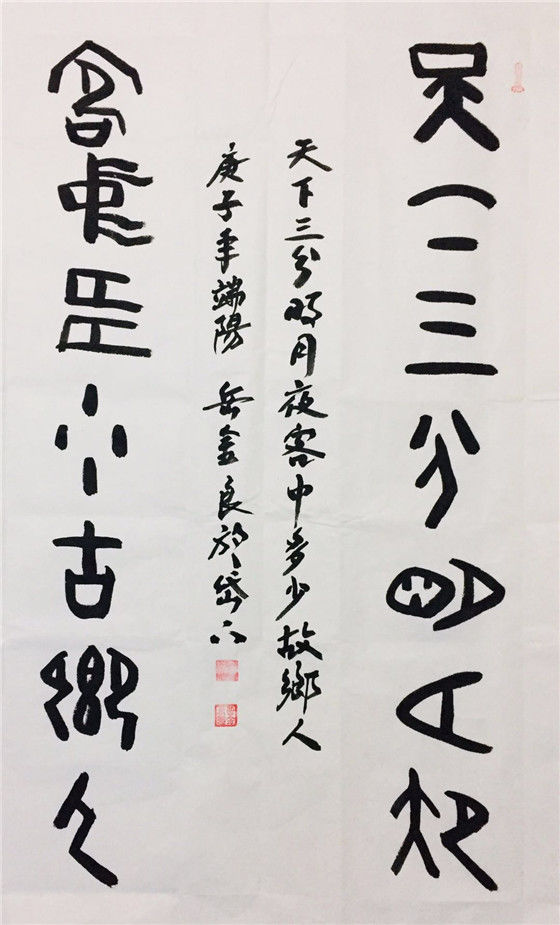 天下三分明月夜
天下三分明月夜客中多少故鄉人
庚子年端陽 岳金良於岱下
客中多小古鄉人